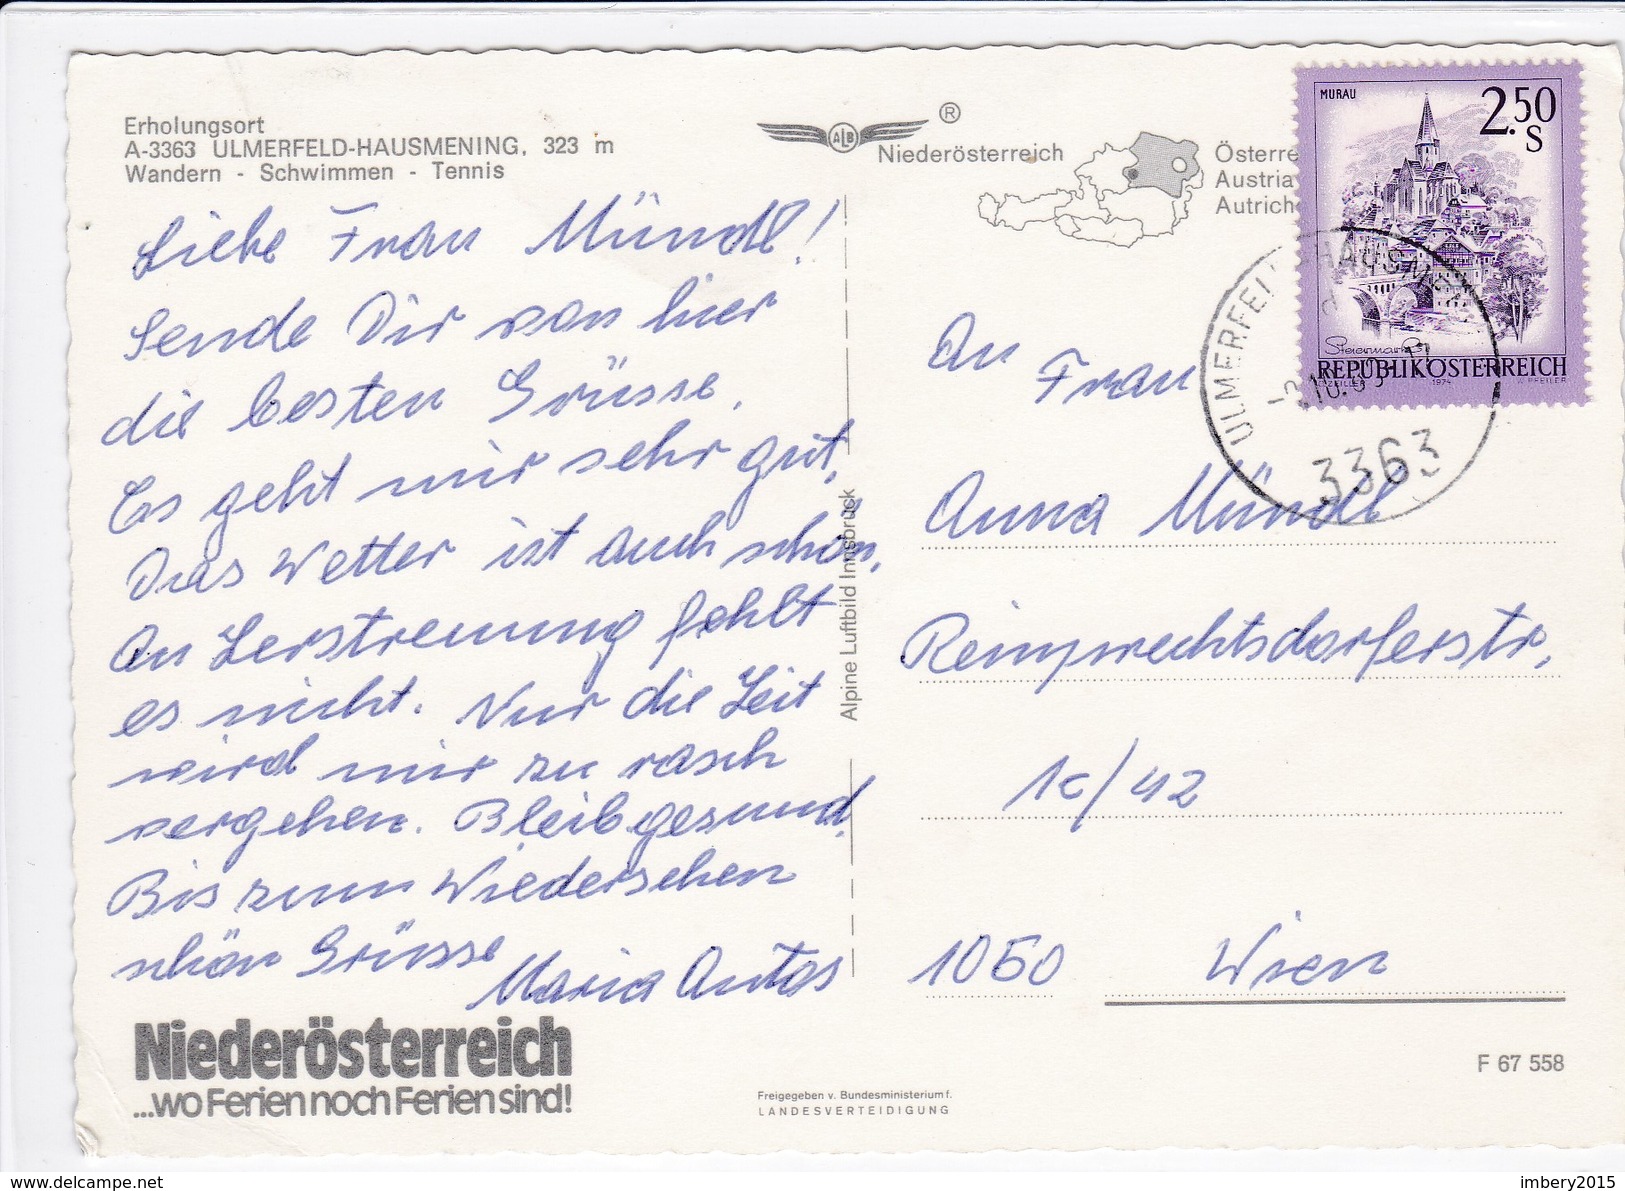 Erholungsort
A-3363 ULMERFELD-HAUSMENING, 323 m
Wandern - Schwimmen - Tennis
Liebe Frau Mündl!
Sende Dir von hier
die besten Grüsse.
Es geht mir sehr gut,
Das Wetter ist auch schön,
An Zerstreuung fehlt
es nicht. Nur die Zeit
wird mir zu rasch
vergehen. Bleib gesund.
Bis zum Wiedersehen
schön Grüsse
Maria
Niederösterreich
...wo Ferien noch Ferien sind!
Alpine Luftbild Innsbruck
ALB ®
Niederösterreich
Österre
Austria
Autriche
MURAU
2.50
S
Steiermark
REPUBLIK ÖSTERREICH
ZEILLER 1974 W. PFEILER
ULMERFELD-HAUSMEN
3363
An
Frau
Anna Mündl
Reinprechtsdorferstr,
1c/42
1050 Wien
F 67 558
Freigegeben v. Bundesministerium f.
LANDESVERTEIDIGUNG
delcampe.net
imbery2015